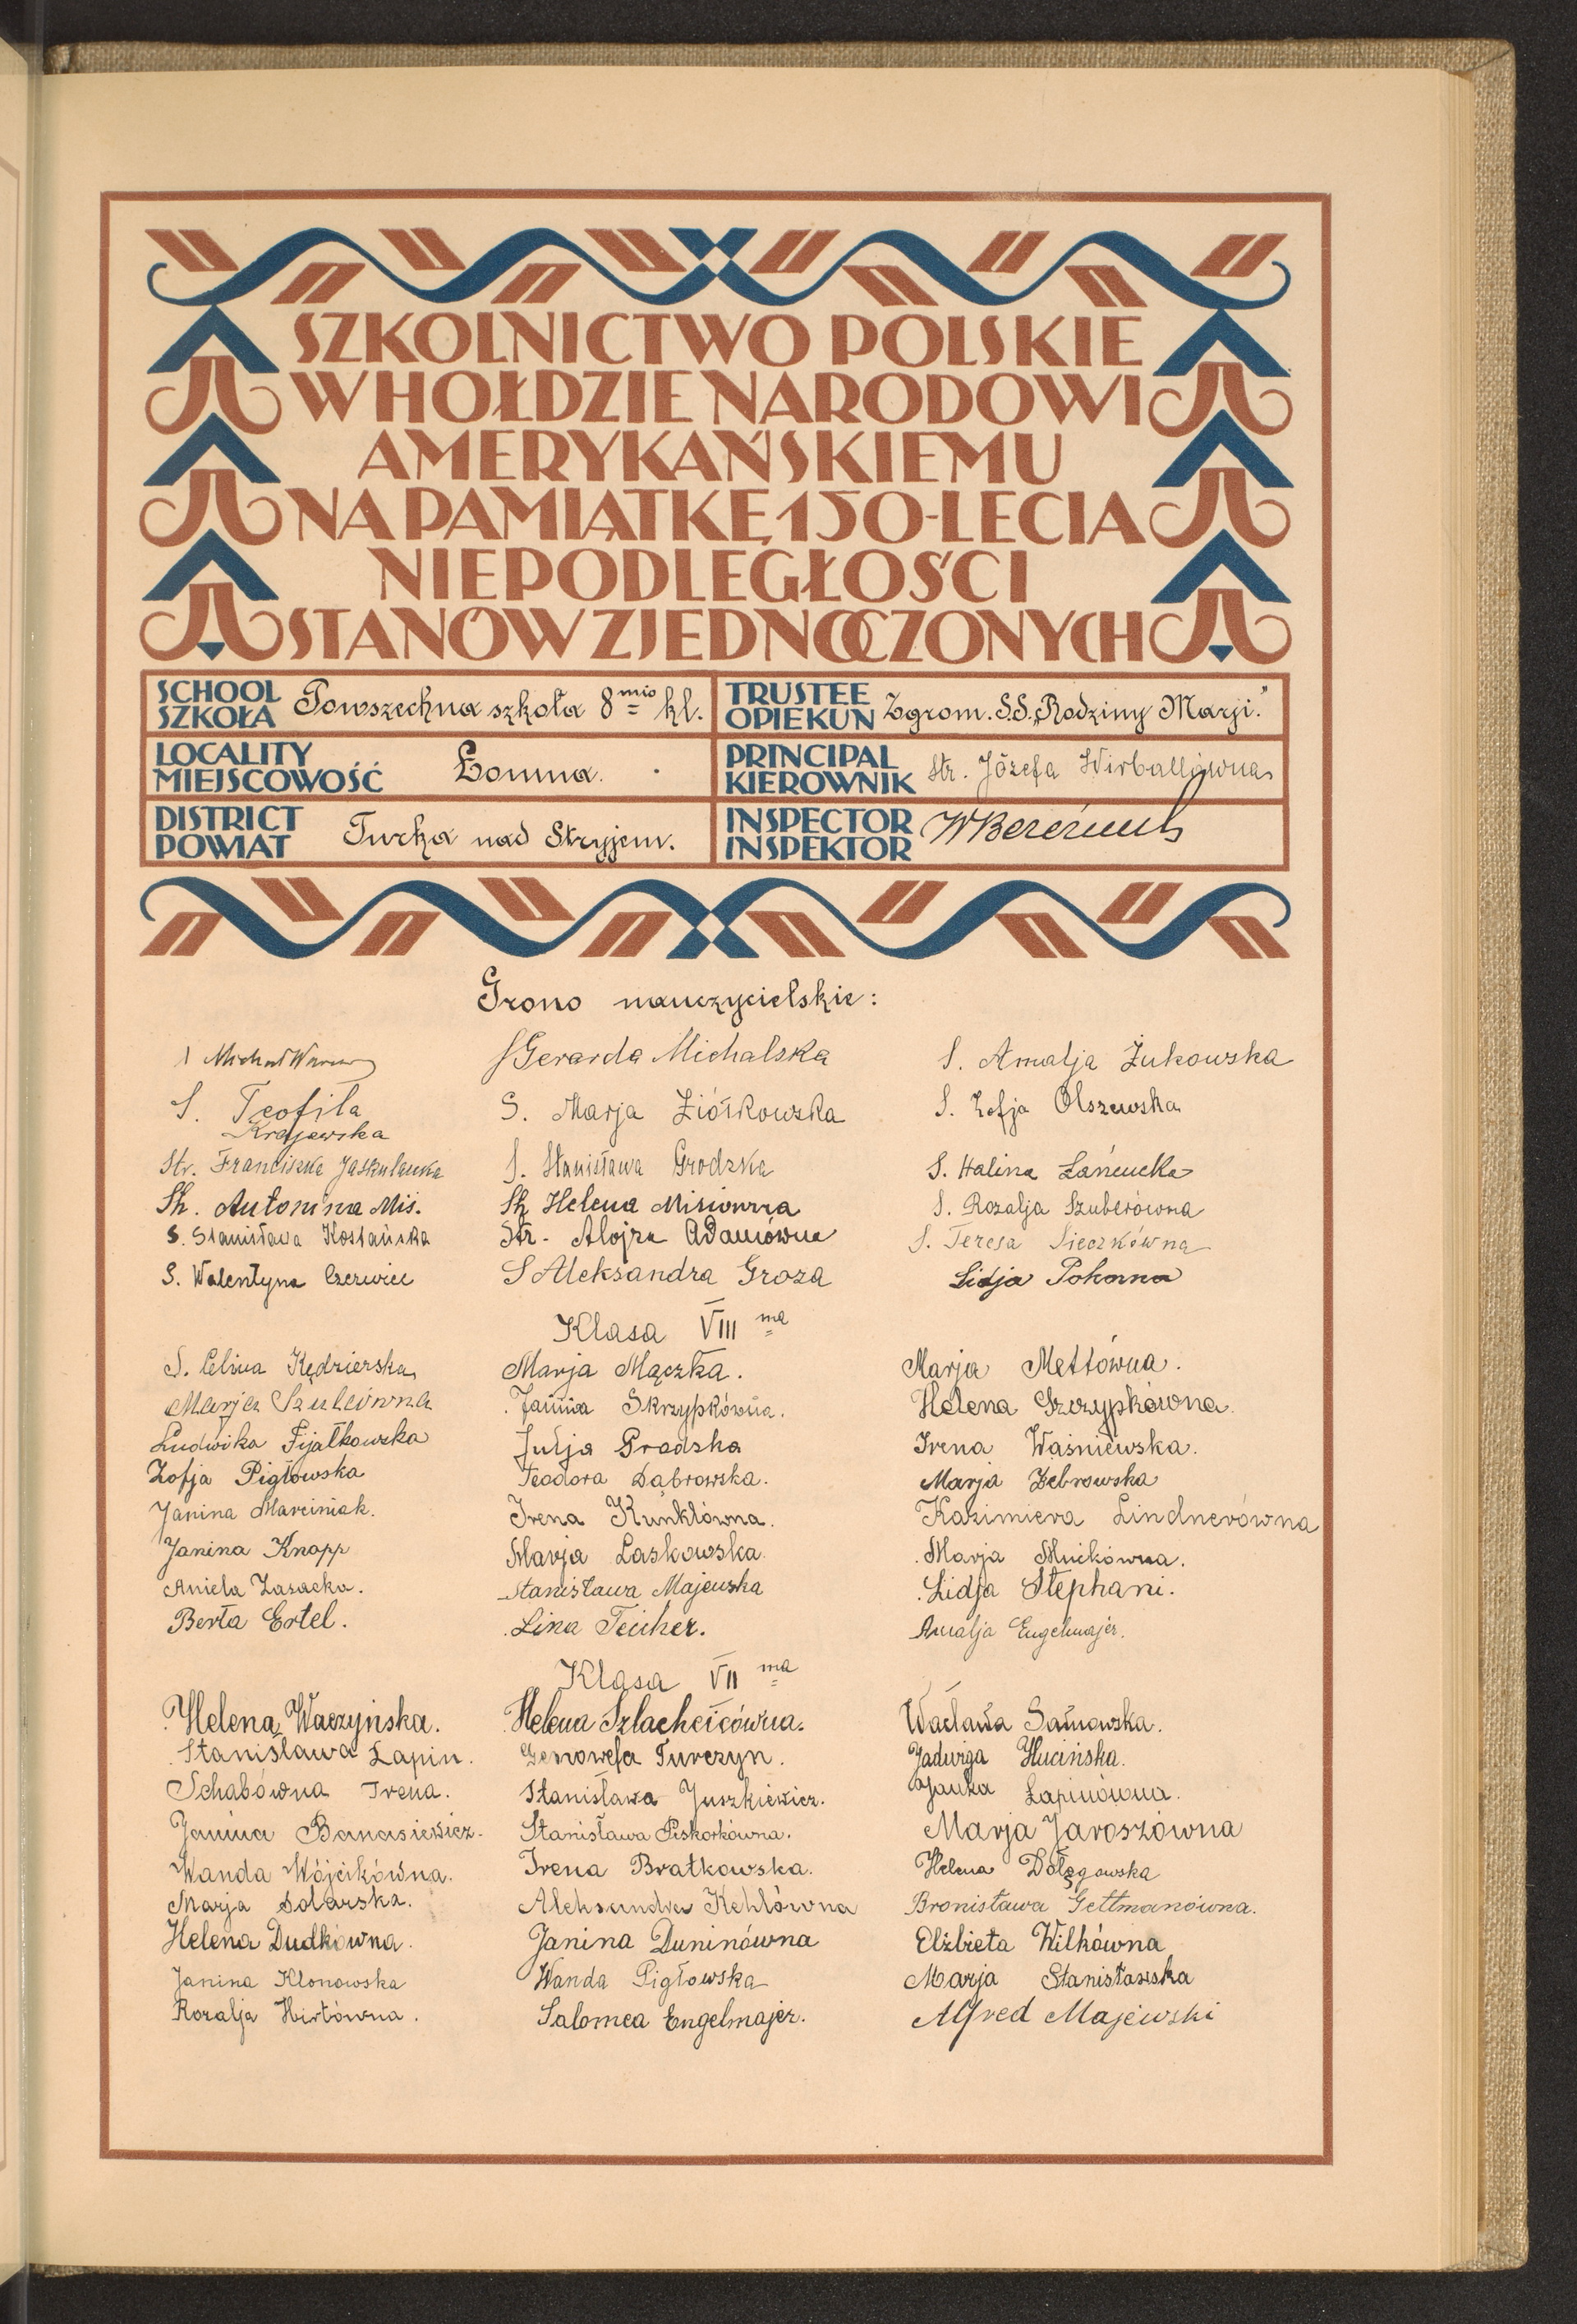 SZKOLNICTWO POLSKIE
W HOŁDZIE NARODOWI
AMERYKAŃSKIEMU
NA PAMIĄTKĘ 150-LECIA
NIEPODLEGŁOŚCI
STANÓW ZJEDNOCZONYCH
SCHOOL
SZKOŁA Powszechna szkoła 8 mio kl.
TRUSTEE
OPIEKUN Zgrom. S.S. „Rodziny Marji."
LOCALITY
MIEJSCOWOŚĆ Łomna.
PRINCIPAL
KIEROWNIK Str. Józefa Wirballówna
DISTRICT
POWIAT Turka nad Stryjem.
INSPECTOR
INSPEKTOR
Grono nauczycielskie:
Michał
S. Gerarda Michalska
S. Amalja Żukowska
S. Teofila
Krajewska
S. Marja Ziółkowska
S. Zofja Olszewska
Str. Franciszka
S. Stanisława Grodzka
S. Halina Łańcucka
Sh. Antonina Mis.
Sh. Helena
S. Rozalja Szuberówna
S. Stanisława Kostańska
Str. Alojza Adamówna
S. Teresa Sieczkówna
S. Walentyna Czerwiec
S Aleksandra Groza
Lidja Pokorna
Klasa VIII ma
S. Celina Kędzierska
Marja Mączka.
Marja Mettówna.
Marja Szulcówna
Janina Skrzypkówna.
Helena Szczypkówna.
Ludwika Fijałkowska
Julja Gradska
Irena Waśniewska.
Zofja Pigłowska
Teodora Dąbrowska.
Marja Żebrowska
Janina Marciniak.
Irena Kunklówna.
Kazimiera Lindnerówna
Janina Knapp
Marja Laskowska.
Marja Mućkówna.
Aniela Zasacka.
Stanisława Majewska
Lidja Stephani.
Berta Ertel.
Lina Teicher.
Amalja Engelmajer.
Klasa VII ma
Helena Waczyńska.
Helena Szlachcicówna.
Wacława Sarnowska.
Stanisława Łapin.
Genowefa Turczyn.
Jadwiga Hucińska.
Schabówna Irena.
Stanisława Juszkiewicz.
Janka Łapinówna.
Janina Banasiewicz.
Stanisława Piskorkówna.
Marja Jaroszówna
Wanda Wójcikówna.
Irena Bratkowska.
Helena Dołęgowska
Marja Solarska.
Aleksandra Kehlówna
Bronisława Gettmanówna.
Helena Dudkówna.
Janina Duninówna
Elżbieta Wilkówna
Janina Klonowska
Wanda Pigłowska
Marja Stanisławska
Rozalja Hirtówna.
Salomea Engelmajer.
Alfred Majewski